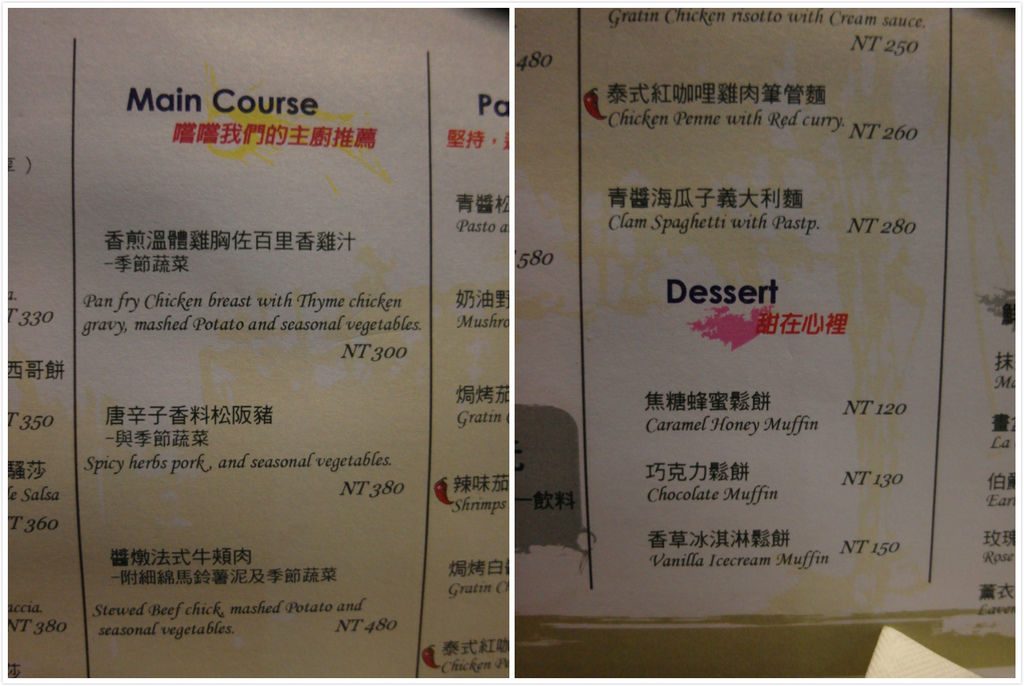 Main Course
嚐嚐我們的主廚推薦
香煎溫體雞胸佐百里香雞汁
-季節蔬菜
Pan fry Chicken breast with Thyme chicken
gravy, mashed Potato and seasonal vegetables.
NT 300
唐辛子香料松阪豬
-與季節蔬菜
Spicy herbs pork, and seasonal vegetables.
NT 380
醬燉法式牛頰肉
-附細綿馬鈴薯泥及季節蔬菜
Stewed Beef chick, mashed Potato and
seasonal vegetables.
NT 480
330
西哥餅
350
騷莎
Salsa
360
NT 380
莎
Pa
堅持,
青醬松
Pasto
奶油野
Mushro
焗烤茄
Gratin
辣味茄
Shrimps
焗烤白
Gratin
泰式紅咖
Chicken
Gratin Chicken risotto with Cream sauce.
NT 250
泰式紅咖哩雞肉筆管麵
Chicken Penne with Red curry.
NT 260
青醬海瓜子義大利麵
Clam Spaghetti with Pastp.
NT 280
Dessert
甜在心裡
焦糖蜂蜜鬆餅
NT 120
Caramel Honey Muffin
巧克力鬆餅
NT 130
Chocolate Muffin
香草冰淇淋鬆餅
NT 150
Vanilla Icecream Muffin
480
580
飲料
抹
Ma
La
伯
Ear
玫瑰
Rose
薰衣
Laven